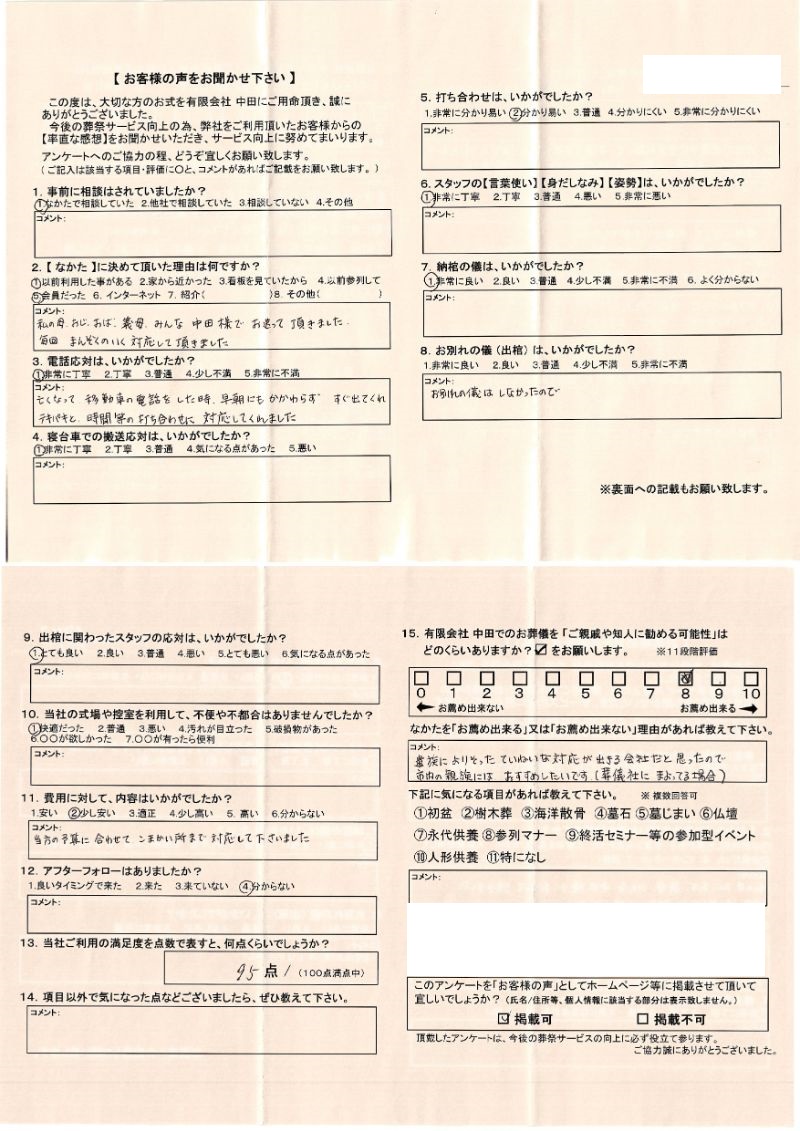 【 お客様の声をお聞かせ下さい 】
この度は、大切な方のお式を有限会社 中田にご用命頂き、誠に
ありがとうございました。
今後の葬祭サービス向上の為、弊社をご利用頂いたお客様からの
【率直な感想】をお聞かせいただき、サービス向上に努めてまいります。
アンケートへのご協力の程、どうぞ宜しくお願い致します。
( ご記入は該当する項目・評価に〇と、コメントがあればご記載をお願い致します。 )
1. 事前に相談はされていましたか？
①なかたで相談していた 2.他社で相談していた 3.相談していない 4.その他
コメント:
2.【 なかた 】に決めて頂いた理由は何ですか？
①以前利用した事がある 2.家から近かった 3.看板を見ていたから 4.以前参列して
⑤会員だった 6. インターネット 7. 紹介( )8. その他( )
コメント:
私の母、おじ、おば、義母、みんな 中田様で お送って 頂きました.
毎回 まんぞくのいく 対応して頂きました
3. 電話応対は、いかがでしたか？
①非常に丁寧 2.丁寧 3.普通 4.少し不満 5.非常に不満
コメント:
亡くなって 移動車の電話をした時、早朝にもかかわらず すぐ出てくれ
テキパキと、時間等の打ち合わせに 対応してくれました
4. 寝台車での搬送応対は、いかがでしたか？
①非常に丁寧 2.丁寧 3.普通 4.気になる点があった 5.悪い
コメント:
5. 打ち合わせは、いかがでしたか？
1.非常に分かり易い ②分かり易い 3.普通 4.分かりにくい 5.非常に分かりにくい
コメント:
6. スタッフの【言葉使い】【身だしなみ】【姿勢】は、いかがでしたか？
①非常に丁寧 2.丁寧 3.普通 4.悪い 5.非常に悪い
コメント:
7. 納棺の儀は、いかがでしたか？
①非常に良い 2.良い 3.普通 4.少し不満 5.非常に不満 6. よく分からない
コメント:
8. お別れの儀（出棺）は、いかがでしたか？
1.非常に良い 2.良い 3.普通 4.少し不満 5.非常に不満
コメント:
お別れの儀は しなかったので
※裏面への記載もお願い致します。
9. 出棺に関わったスタッフの応対は、いかがでしたか？
①.とても良い 2.良い 3.普通 4.悪い 5.とても悪い 6.気になる点があった
コメント:
10. 当社の式場や控室を利用して、不便や不都合はありませんでしたか？
①快適だった 2.普通 3.悪い 4.汚れが目立った 5.破損物があった
6.〇〇が欲しかった 7.〇〇が有ったら便利
コメント:
11. 費用に対して、内容はいかがでしたか？
1.安い ②少し安い 3.適正 4.少し高い 5. 高い 6.分からない
コメント:
当方の予算に 合わせて こまかい所まで 対応して下さいました
12. アフターフォローはありましたか？
1.良いタイミングで来た 2.来た 3.来ていない ④分からない
コメント:
13. 当社ご利用の満足度を点数で表すと、何点くらいでしょうか？
95 点 / (100点満点中)
14. 項目以外で気になった点などございましたら、ぜひ教えて下さい。
コメント:
15. 有限会社 中田でのお葬儀を「ご親戚や知人に勧める可能性」は
どのくらいありますか？☑ をお願いします。 ※11段階評価
0 1 2 3 4 5 6 7 8 9 10
お薦め出来ない お薦め出来る
なかたを「お薦め出来る」又は「お薦め出来ない」理由があれば教えて下さい。
コメント:
遺族によりそった ていねいな対応が出きる会社だと思ったので
市内の親族には おすすめしたいです (葬儀社にまよってる場合)
下記に気になる項目があれば教えて下さい。 ※ 複数回答可
①初盆 ②樹木葬 ③海洋散骨 ④墓石 ⑤墓じまい ⑥仏壇
⑦永代供養 ⑧参列マナー ⑨終活セミナー等の参加型イベント
⑩人形供養 ⑪特になし
コメント:
このアンケートを「お客様の声」としてホームページ等に掲載させて頂いて
宜しいでしょうか？（氏名/住所等、個人情報に該当する部分は表示致しません。）
☑ 掲載可 □ 掲載不可
頂戴したアンケートは、今後の葬祭サービスの向上に必ず役立て参ります。
ご協力誠にありがとうございました。